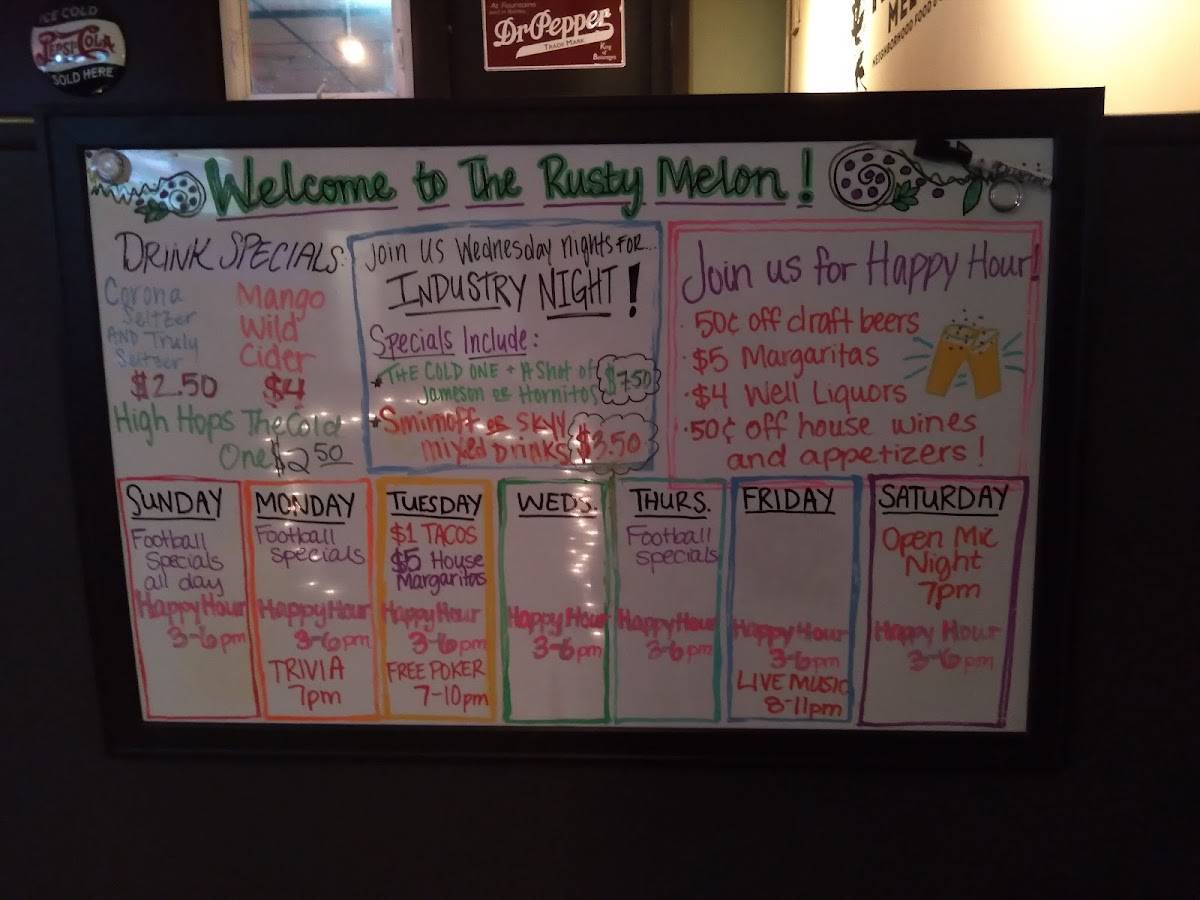 ICE COLD
PEPSI-COLA
SOLD HERE
Dr Pepper
TRADE MARK
King
of
Beverages
NEIGHBORHOOD FOOD
Welcome to The Rusty Melon!
DRINK SPECIALS:
Corona
Seltzer
AND Truly
Seltzer
$2.50
Mango
Wild
Cider
$4
High Hops The Cold
One $2.50
Join us Wednesday nights FOR...
INDUSTRY NIGHT!
Specials Include:
*THE COLD ONE + A Shot of
Jameson or Hornitos $7.50
*Smirnoff or SKYY
mixed Drinks $3.50
Join us for Happy Hour!
· 50¢ off draft beers
· $5 Margaritas
· $4 Well Liquors
· 50¢ off house wines
and appetizers!
SUNDAY
Football
Specials
all day
Happy Hour
3-6pm
MONDAY
Football
Specials
Happy Hour
3-6pm
TRIVIA
7pm
TUESDAY
$1 TACOS
$5 House
Margaritas
Happy Hour
3-6pm
FREE POKER
7-10pm
WEDS.
Happy Hour
3-6pm
THURS.
Football
specials
Happy Hour
3-6pm
FRIDAY
Happy Hour
3-6pm
LIVE MUSIC
8-11pm
SATURDAY
Open Mic
Night
7pm
Happy Hour
3-6pm